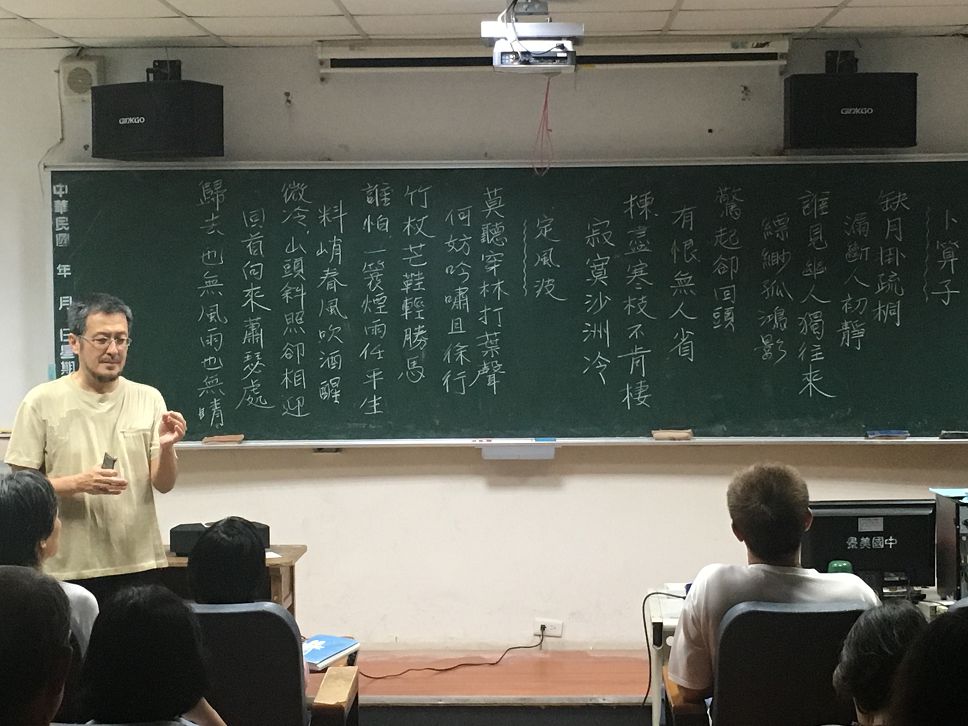 GINKGO
GINKGO
卜算子
缺月掛疏桐
漏斷人初靜
誰見幽人獨往來
縹緲孤鴻影
驚起卻回頭
有恨無人省
揀盡寒枝不肯棲
寂寞沙洲冷
定風波
莫聽穿林打葉聲
何妨吟嘯且徐行
竹杖芒鞋輕勝馬
誰怕 一簑煙雨任平生
料峭春風吹酒醒
微冷,山頭斜照卻相迎
回首向來蕭瑟處
歸去 也無風雨也無晴
中華民國 年 月 日星期
景美國中